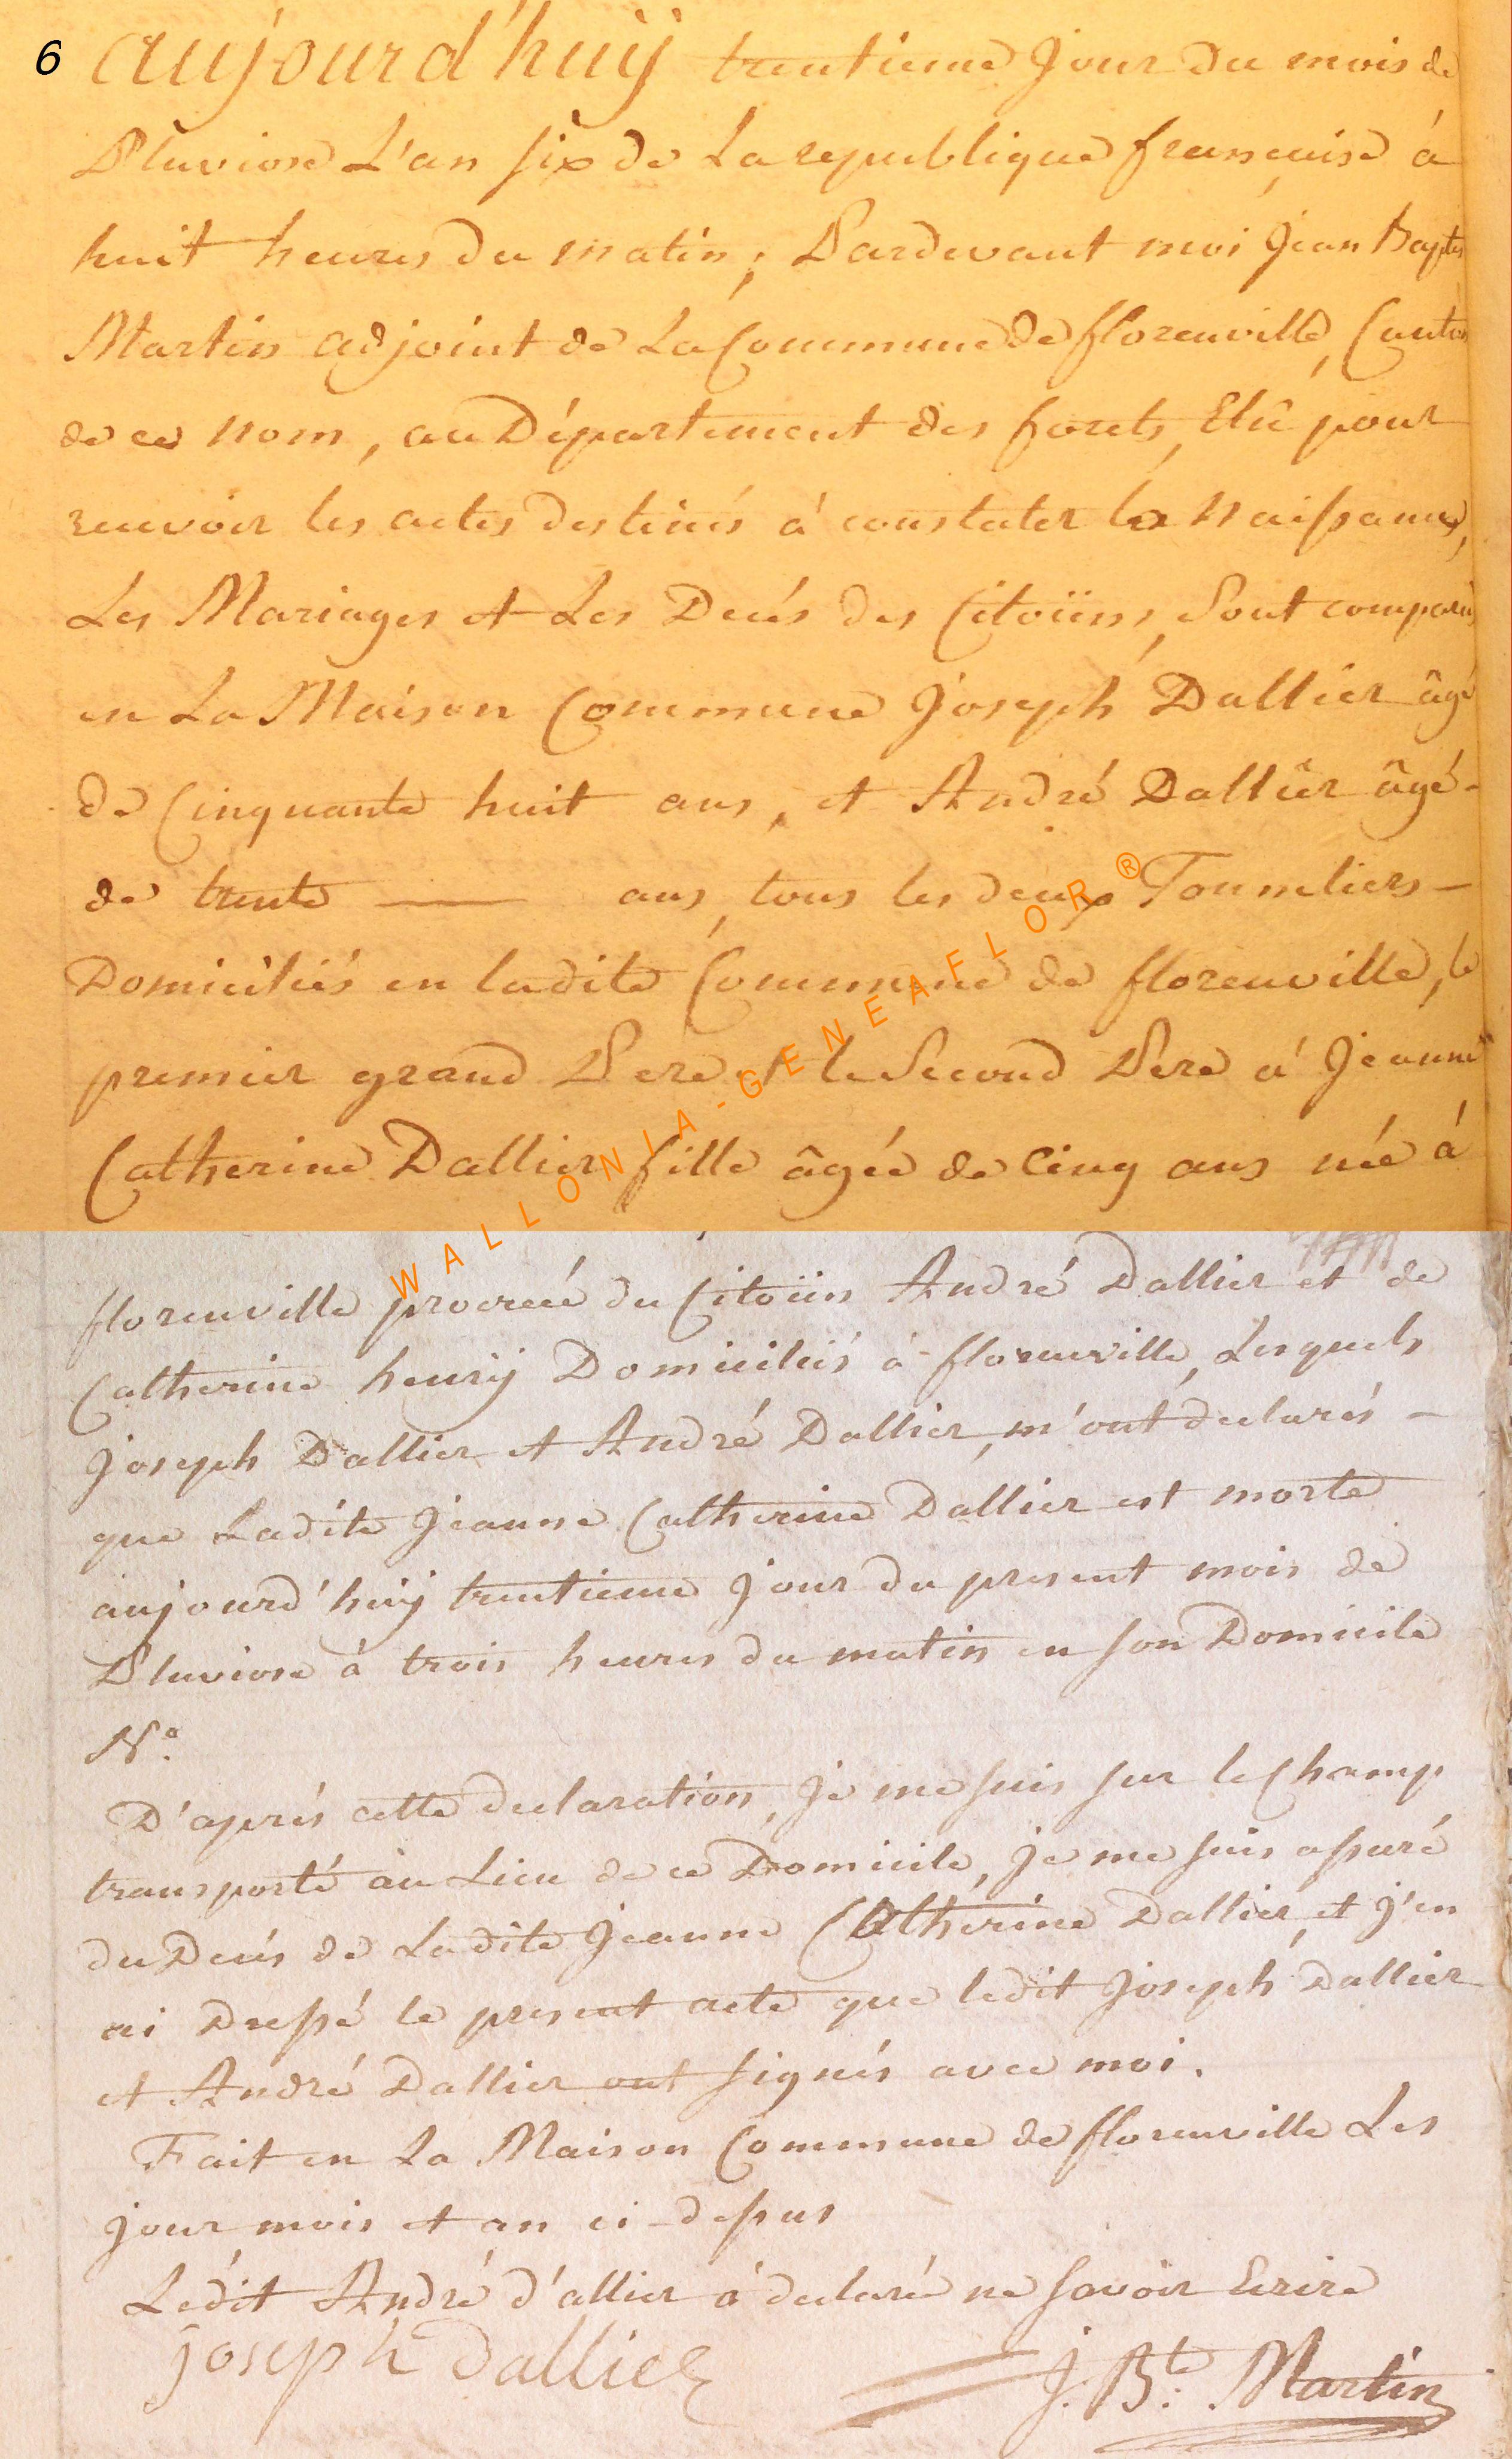 6 aujourd'huÿ trentieme jour du mois de
Pluviose L'an six de La republique francaise à
huit heures du matin; Pardevant moi Jean Baptes
Martin adjoint de La Commune de florenville, Canton
de ce nom, au Département des forets, Elû pour
recevoir les actes destinés à constater la Naissance,
Les Mariages et Les Decés des Citoïens, Sont comparus
en La Maison Commune Joseph Dallier âgé
de Cinquante huit ans, et André Dallier âgé -
de trente — ans, tous les deux Tonneliers -
Domiciliés en ladite Commune de florenville, le
premier grand Pere et le Second Pere à Jeanne
Catherine Dallier fille âgée de Cinq ans née à
florenville procréé du Citoïen André Dallier et de
Catherine henrÿ Domiciliés à florenville, Lesquels
Joseph Dallier et André Dallier, m'ont declarés -
que Ladite Jeanne Catherine Dallier est morte
aujourd'huÿ trentieme jour du present mois de
Pluviose à trois heures du matin en son Domicile
N°.
D'aprés cette declaration, je me suis sur le Champ
transporté au Lieu de ce Domicile, je me suis assuré
du Decés de Ladite Jeanne Catherine Dallier, et j'en
ai Dressé le present acte que ledit Joseph Dallier
et André Dallier ont signés avec moi.
Fait en La Maison Commune de florenville Les
jour mois et an ci-dessus
Ledit André d'allier à declaré ne savoir Ecrire
joseph dallier J. Bte. Martin
WALLONIA-GENEAFLOR®